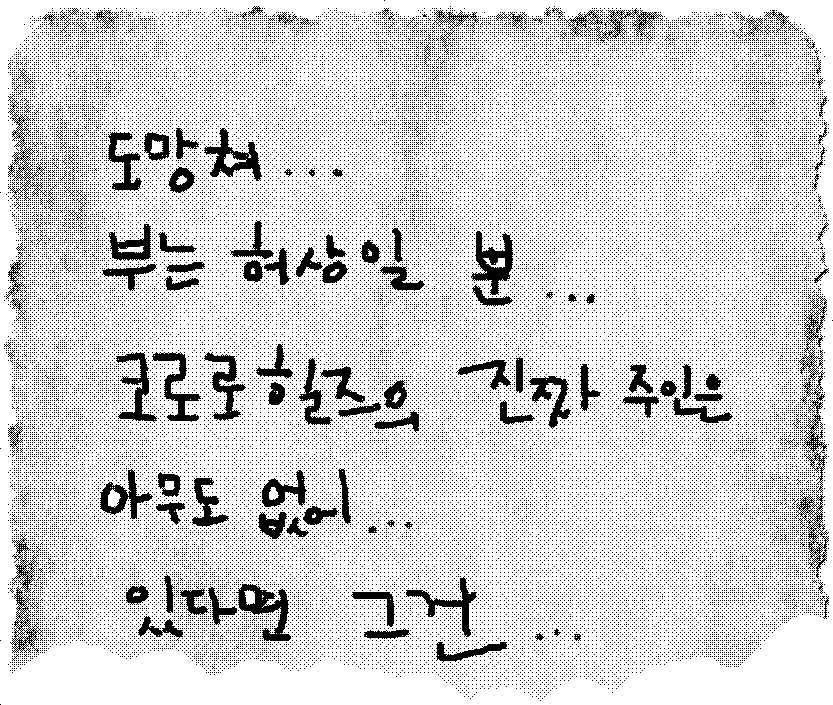 도망쳐...
부는 허상일 뿐...
코로로힐즈의 진짜 주인은
아무도 없어...
있다면 그건...